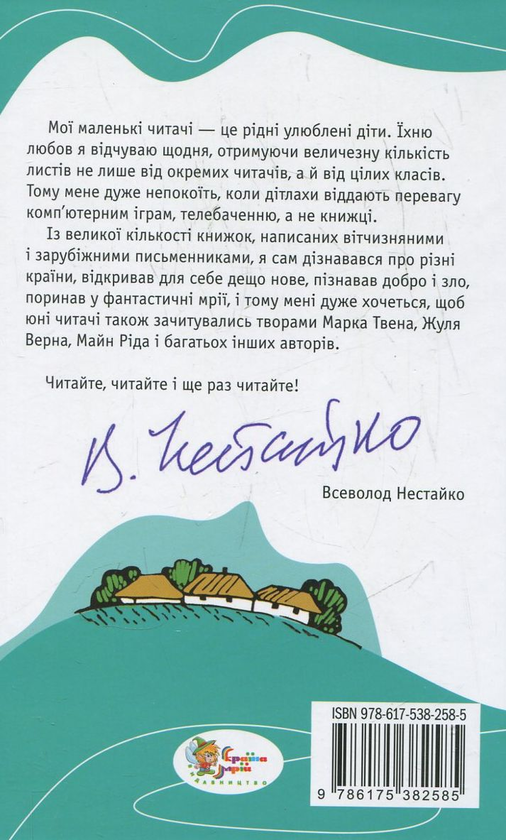 Мої маленькі читачі — це рідні улюблені діти. Їхню
любов я відчуваю щодня, отримуючи величезну кількість
листів не лише від окремих читачів, а й від цілих класів.
Тому мене дуже непокоїть, коли дітлахи віддають перевагу
комп'ютерним іграм, телебаченню, а не книжці.
Із великої кількості книжок, написаних вітчизняними
і зарубіжними письменниками, я сам дізнавався про різні
країни, відкривав для себе дещо нове, пізнавав добро і зло,
поринав у фантастичні мрії, і тому мені дуже хочеться, щоб
юні читачі також зачитувались творами Марка Твена, Жуля
Верна, Майн Ріда і багатьох інших авторів.
Читайте, читайте і ще раз читайте!
В. Нестайко
Всеволод Нестайко
ISBN 978-617-538-258-5
Країна
мрій
видавництво
9 786175 382585